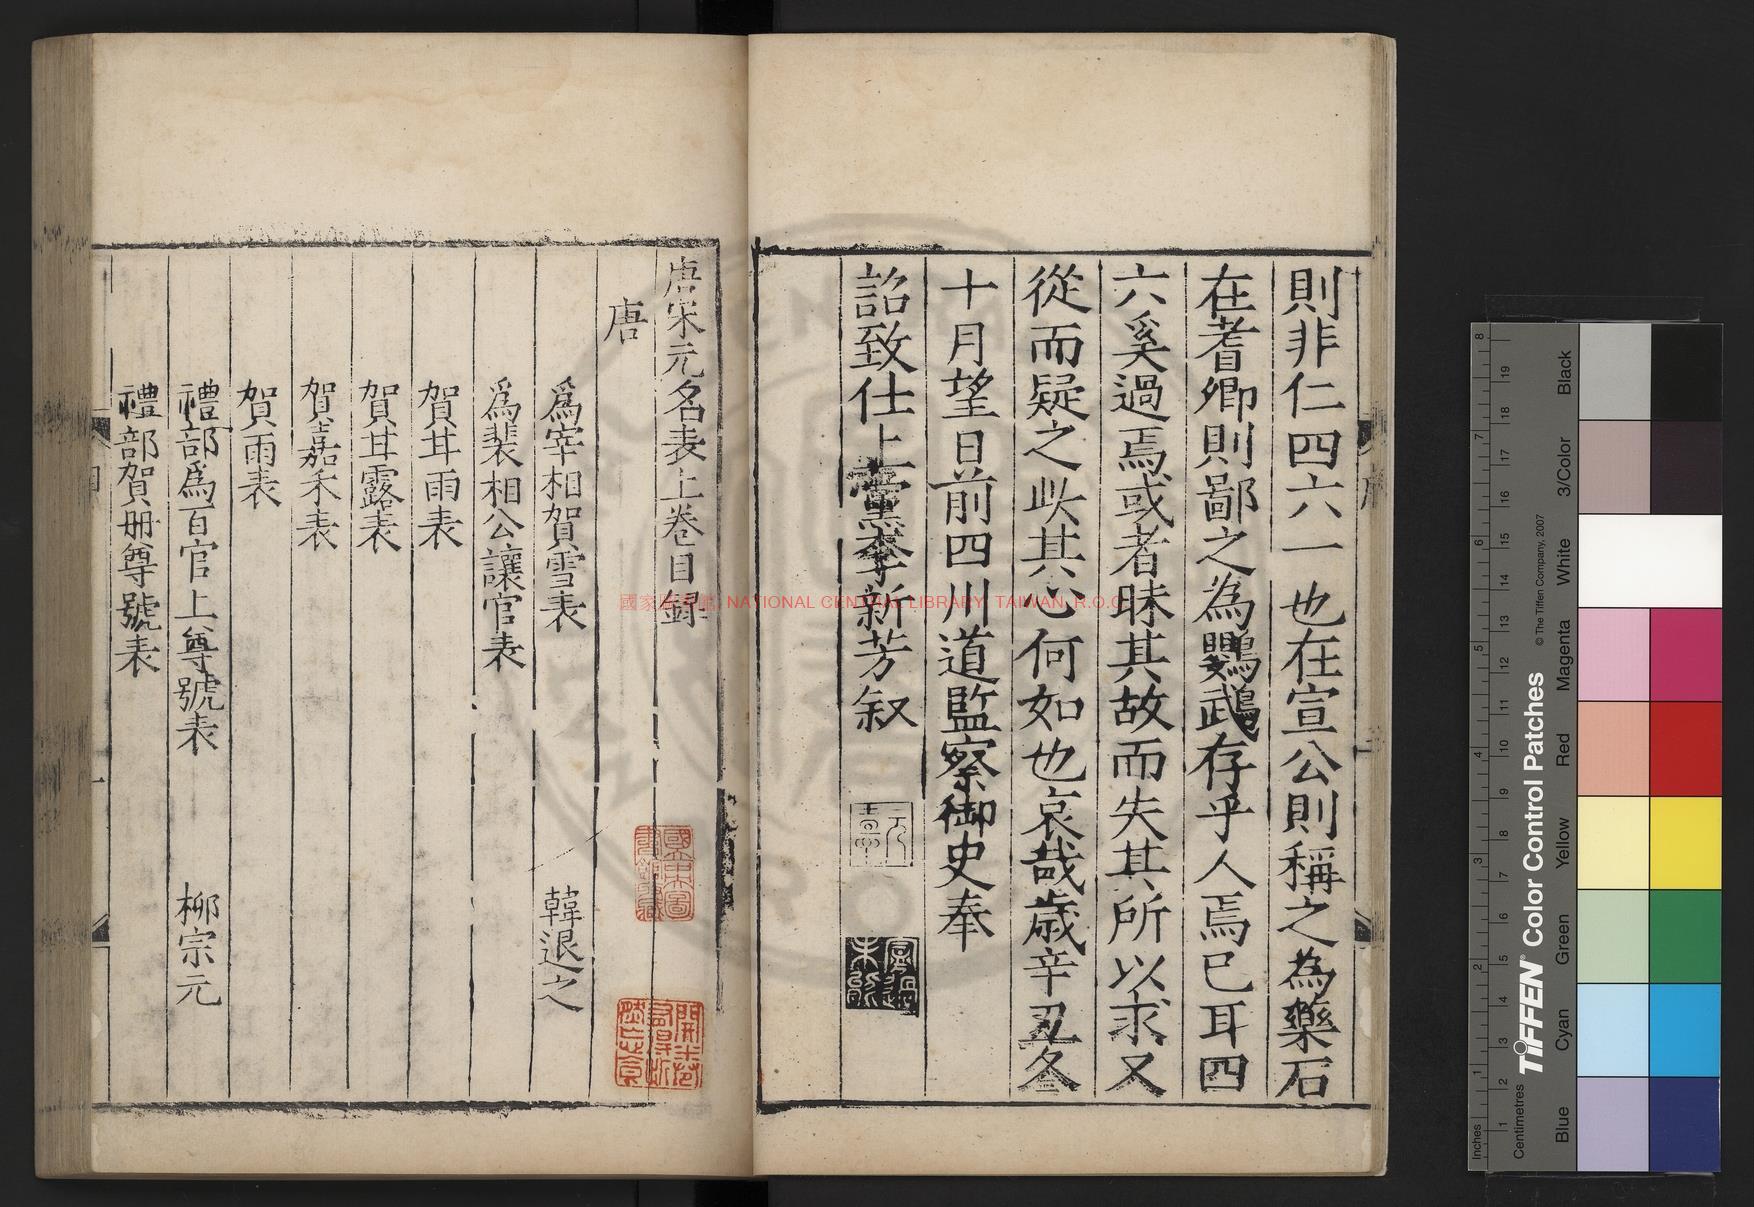 則非仁四六一也在宣公則稱之為藥石
在耆卿則鄙之為鸚鵡存乎人焉已耳四
六奚過焉或者昧其故而失其所以求又
從而疑之此其心何如也哀哉歲辛丑冬
十月望日前四川道監察御史奉
詔致仕上黨李新芳叙
唐宋元名表上卷目錄
唐
為宰相賀雪表 韓退之
為裴相公讓官表
賀甘雨表
賀甘露表
賀嘉禾表
賀雨表
禮部為百官上尊號表 柳宗元
禮部賀冊尊號表
國家圖書館 NATIONAL CENTRAL LIBRARY, TAIWAN, R.O.C.
TIFFEN® Color Control Patches
© The Tiffen Company, 2007
Inches
Centimetres
1 2 3 4 5 6 7 8
1 2 3 4 5 6 7 8 9 10 11 12 13 14 15 16 17 18 19
Blue
Cyan
Green
Yellow
Red
Magenta
White
3/Color
Black